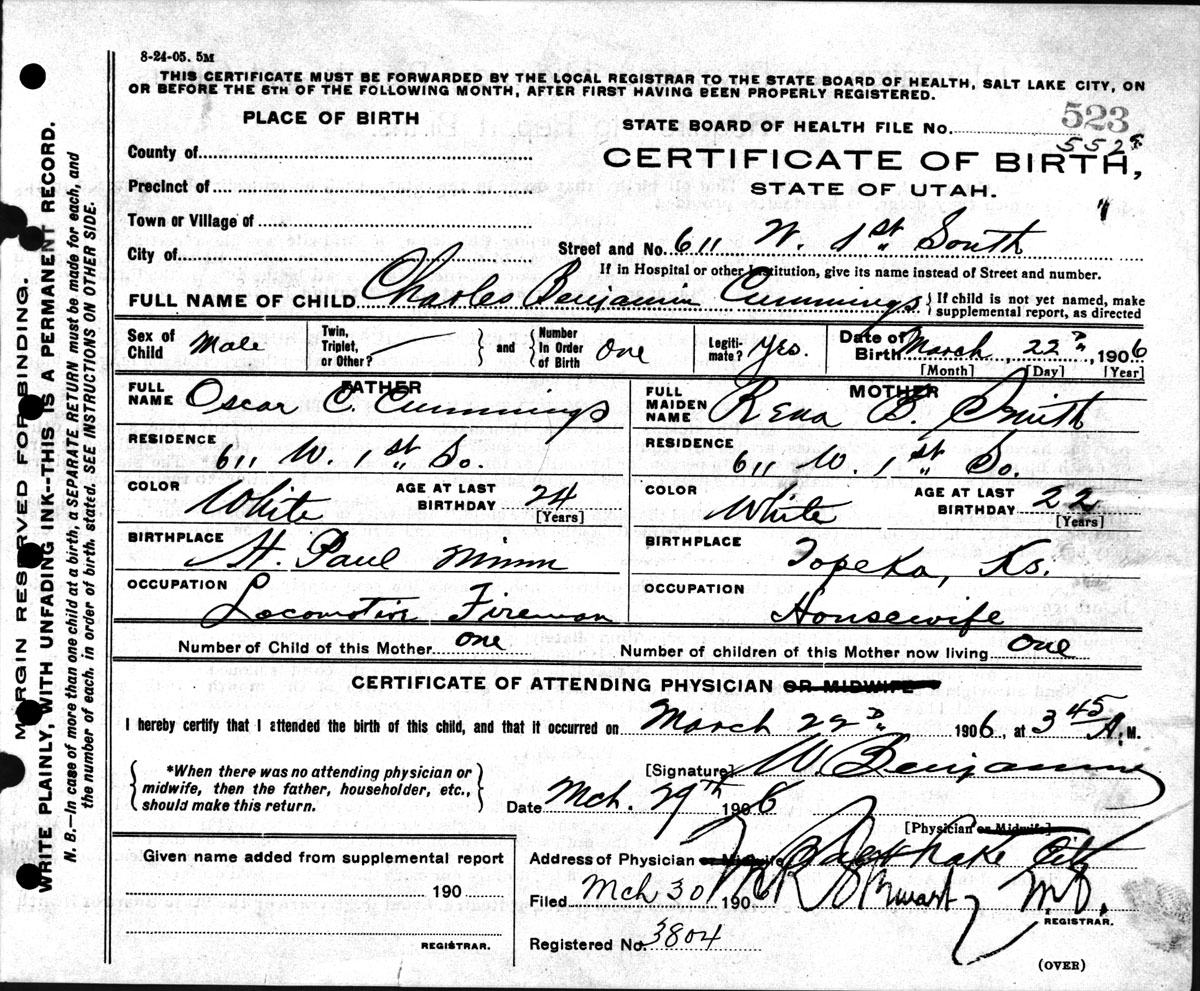 8-24-05. 5M
THIS CERTIFICATE MUST BE FORWARDED BY THE LOCAL REGISTRAR TO THE STATE BOARD OF HEALTH, SALT LAKE CITY, ON
OR BEFORE THE 5TH OF THE FOLLOWING MONTH, AFTER FIRST HAVING BEEN PROPERLY REGISTERED.
PLACE OF BIRTH
STATE BOARD OF HEALTH FILE No. 523
552
County of
CERTIFICATE OF BIRTH,
Precinct of
STATE OF UTAH.
Town or Village of
Street and No. 611 W. 1st South
City of
If in Hospital or other Institution, give its name instead of Street and number.
FULL NAME OF CHILD Charles Benjamin Cummings { If child is not yet named, make supplemental report, as directed
Sex of Child Male Twin, Triplet, or Other? } and { Number In Order of Birth One Legiti- mate? Yes. Date of Birth March 22d, 1906
[Month] [Day] [Year]
FATHER
FULL NAME Oscar C. Cummings
MOTHER
FULL MAIDEN NAME Rena B. Smith
RESIDENCE
611 W. 1st So.
RESIDENCE
611 W. 1st So.
COLOR White AGE AT LAST BIRTHDAY 24
[Years]
COLOR White AGE AT LAST BIRTHDAY 22
[Years]
BIRTHPLACE
St. Paul Minn
BIRTHPLACE
Topeka, Ks.
OCCUPATION
Locomotive Fireman
OCCUPATION
Housewife
Number of Child of this Mother one
Number of children of this Mother now living one
CERTIFICATE OF ATTENDING PHYSICIAN OR MIDWIFE
I hereby certify that I attended the birth of this child, and that it occurred on March 22d 1906, at 3 45 A. M.
{ *When there was no attending physician or
midwife, then the father, householder, etc.,
should make this return. }
[Signature] W. Benjamin
Date Mch. 29th 1906
[Physician or Midwife]
Given name added from supplemental report
190
REGISTRAR.
Address of Physician or Midwife Salt Lake City
Filed Mch 30 1906 M.D.
REGISTRAR.
Registered No. 3804
(OVER)
MARGIN RESERVED FOR BINDING.
WRITE PLAINLY, WITH UNFADING INK--THIS IS A PERMANENT RECORD.
N. B.—In case of more than one child at a birth, a SEPARATE RETURN must be made for each, and
the number of each, in order of birth, stated. SEE INSTRUCTIONS ON OTHER SIDE.